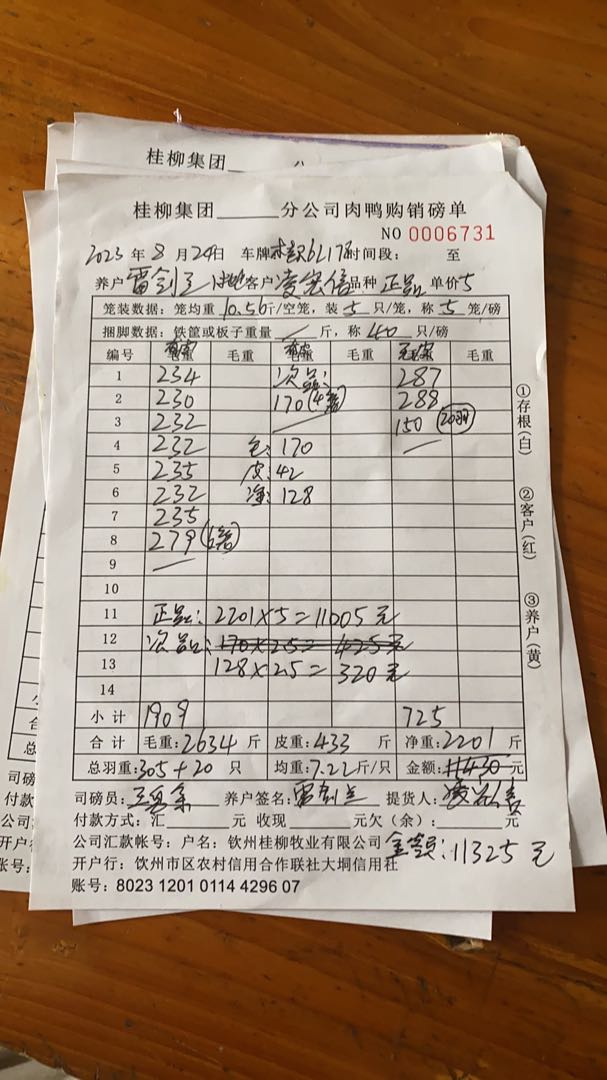 桂柳集团
桂柳集团______分公司肉鸭购销磅单
NO 0006731
2023 年 8 月 24日 车牌 6L178 时间段: 至
养户 雷剑兰 客户 凌宏信 品种 正品 单价 5
笼装数据: 笼均重 10.56 斤/空笼, 装 5 只/笼, 称 5 笼/磅
捆脚数据: 铁筐或板子重量 / 斤, 称 40 只/磅
编号 毛重 毛重 毛重
1 234 次品: 287
2 230 170 (4笼) 288
3 232 150 (20羽)
4 232 毛: 170
5 235 皮: 42
6 232 净: 128
7 235
8 279 (6笼)
9
10
11 正品: 2201×5=11005元
12 次品: 170×2.5=425元
13 128×2.5=320元
14
小计 1909 725
合计 毛重: 2634 斤 皮重: 433 斤 净重: 2201 斤
总羽重: 305+20 只 均重: 7.22 斤/只 金额: 11430 元
司磅员: 养户签名: 雷剑兰 提货人:
付款方式: 汇____元 收现____元欠(余):____元
公司汇款帐号: 户名: 钦州桂柳牧业有限公司 金额: 11325 元
开户行: 钦州市区农村信用合作联社大垌信用社
账号: 8023 1201 0114 4296 07
①存根(白)
②客户(红)
③养户(黄)